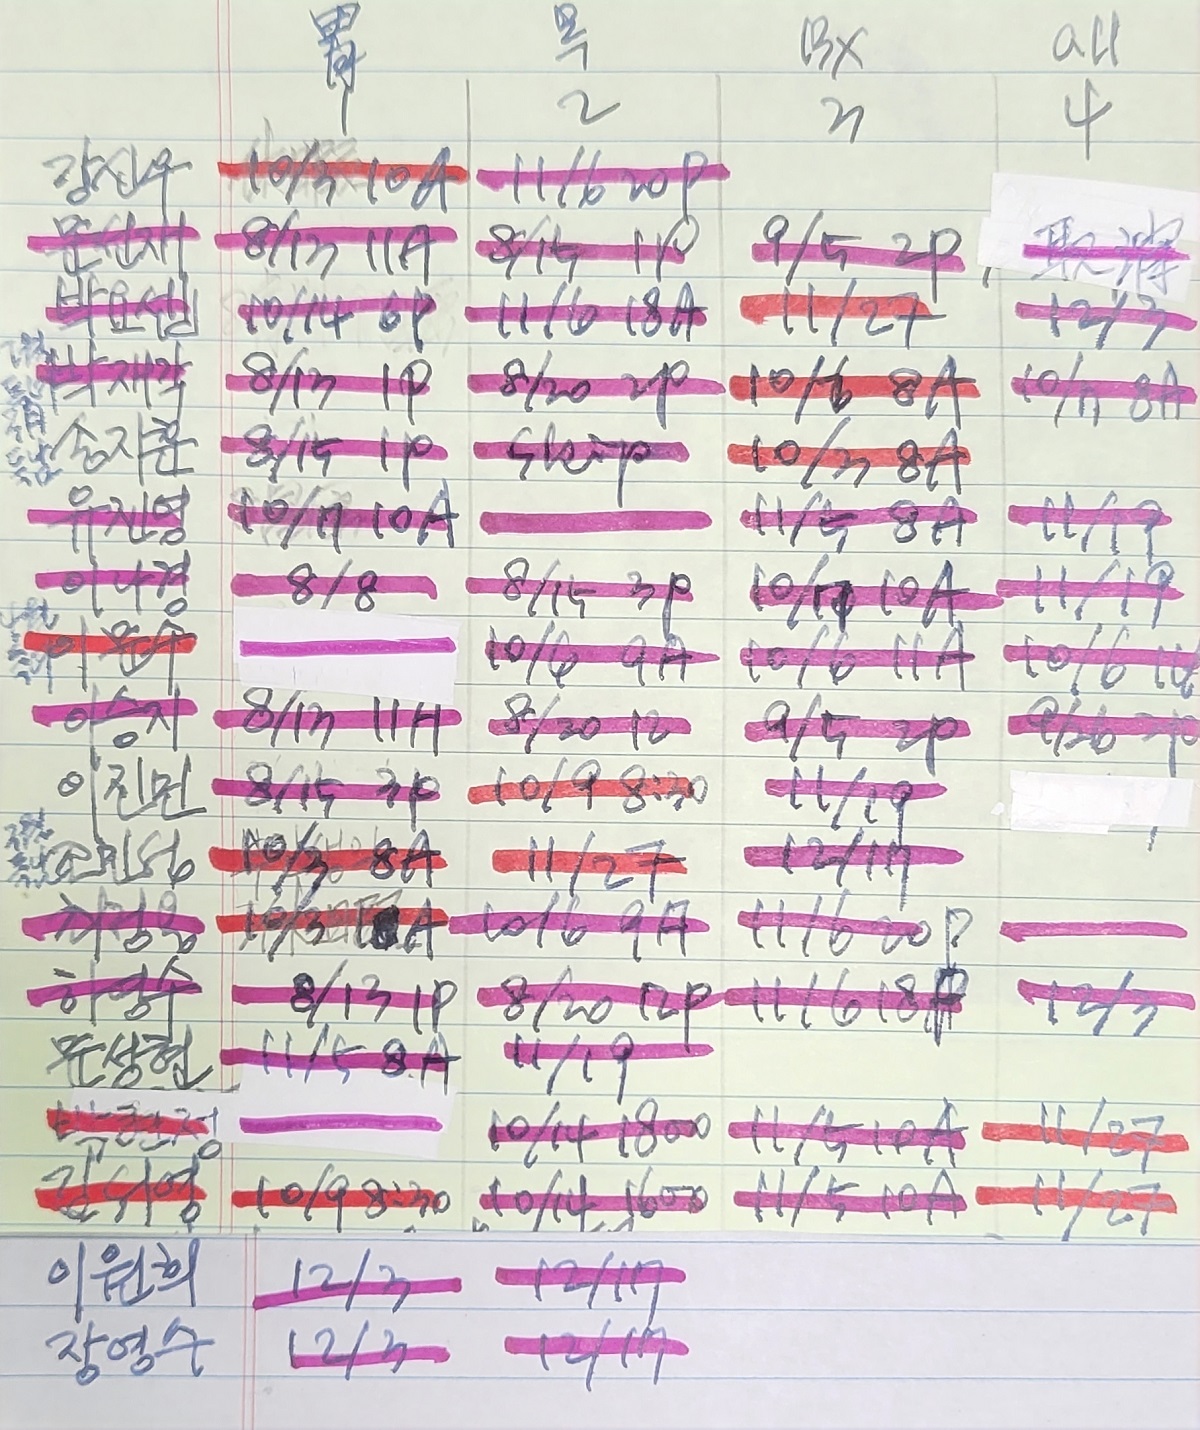 胃 목 Bx all
1 2 3 4
강신우 10/3 10A 11/6 20P
문선재 8/13 11A 8/15 1P 9/5 2P
박요섭 10/14 6P 11/6 18A 11/27 12/3
박재각 8/13 1P 8/20 2P 8A 8A
송지훈 8/15 1P Skip 10/3 8A
유진영 10/17 10A 11/5 8A 11/19
이나경 8/8 8/15 3P 10A 11/19
이윤수 10/6 9A 10/6 11A 10/6
이승지 8/13 11A 8/20 12 9/5 2P 9/26 2P
이진민 8/15 3P 10/9 8:30 11/19
10/3 8A 11/27 12/17
10/3 A 10/6 9A 11/6 20P
하영수 8/13 1P 8/20 12P 11/6 18P 12/3
문상현 11/5 8A 11/19
10/14 1800 11/5 10A 11/27
10/9 8:30 10/14 1600 11/5 10A 11/27
이원희 12/3 12/17
장영수 12/3 12/17